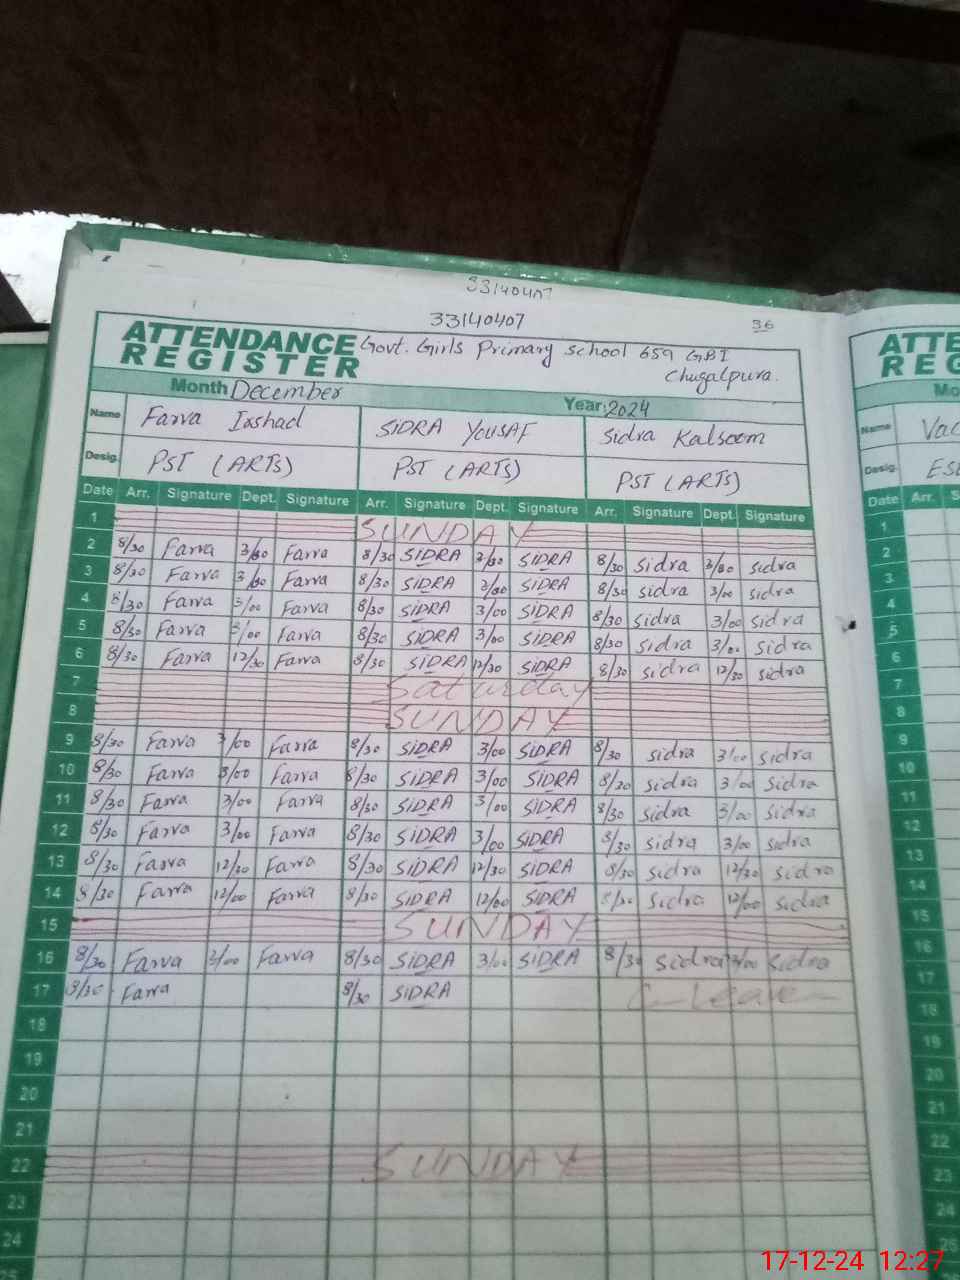 33140407
33140407
36
ATTENDANCE REGISTER Govt. Girls Primary School 659 GBI
Chugalpura.
Month December Year: 2024
Name Farva Irshad SIDRA YOUSAF Sidra Kalsoom
Desig. PST (ARTS) PST (ARTS) PST (ARTS)
Date Arr. Signature Dept. Signature Arr. Signature Dept. Signature Arr. Signature Dept. Signature
1 SUNDAY
2 8/30 Farva Farva 8/30 SIDRA SIDRA 8/30 sidra sidra
3 8/30 Farva Farva 8/30 SIDRA SIDRA 8/30 sidra 3/00 sidra
4 8/30 Farva 3/00 Farva 8/30 SIDRA 3/00 SIDRA 8/30 sidra 3/00 sidra
5 8/30 Farva 3/00 Farva 8/30 SIDRA 3/00 SIDRA 8/30 sidra 3/00 sidra
6 8/30 Farva 12/30 Farva 8/30 SIDRA 12/30 SIDRA 8/30 sidra 12/30 sidra
7 Saturday
8 SUNDAY
9 8/30 Farva 3/00 Farva 8/30 SIDRA 3/00 SIDRA 8/30 sidra 3/00 sidra
10 8/30 Farva 3/00 Farva 8/30 SIDRA 3/00 SIDRA 8/30 sidra 3/00 sidra
11 8/30 Farva 3/00 Farva 8/30 SIDRA 3/00 SIDRA 8/30 sidra 3/00 sidra
12 8/30 Farva 3/00 Farva 8/30 SIDRA 3/00 SIDRA 8/30 sidra 3/00 sidra
13 8/30 Farva 12/30 Farva 8/30 SIDRA 12/30 SIDRA 8/30 sidra 12/30 sidra
14 8/30 Farva 12/00 Farva 8/30 SIDRA 12/00 SIDRA 8/30 sidra 12/00 sidra
15 SUNDAY
16 8/30 Farva 3/00 Farva 8/30 SIDRA 3/00 SIDRA 8/30 sidra 3/00 sidra
17 8/30 Farva 8/30 SIDRA C-Leave
18
19
20
21
22 SUNDAY
23
24
ATTE
REG
Mo
Name
Desig.
Date Arr. S
1
2
3
4
5
6
7
8
9
10
11
12
13
14
15
16
17
18
19
20
21
22
23
24
25
17-12-24 12:27